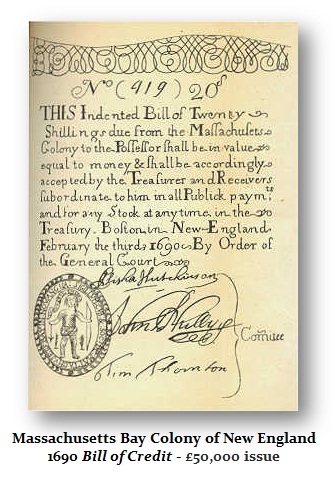 No (919) 20s
THIS Indented Bill of Twenty
Shillings due from the Massachusets
Colony to the Possessor shall be in value
equal to money & shall be accordingly
accepted by the Treasurer and Receivers
subordinate to him in all Publick paymts
and for any Stock at any time in the
Treasury. Boston in New-England
February the third 1690 By Order of
the General Court
Elisha Hutchinson
John Walley
Tim Thornton
Comitee
Massachusetts Bay Colony of New England
1690 Bill of Credit - £50,000 issue